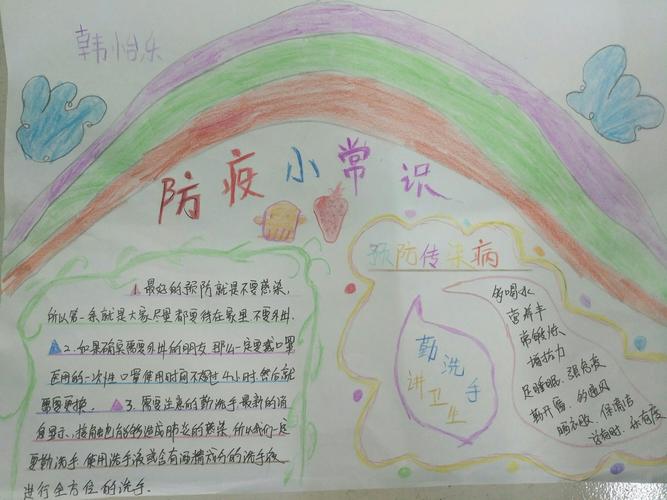 韩怡乐
防疫小常识
1.最好的预防就是不要感染,
所以第一条就是大家尽量都要待在家里不要外出.
2.如果确实需要外出的朋友那么一定要戴口罩
医用的一次性口罩使用时间不超过4小时然后就
需要更换. 3.需要注意的勤洗手最新的消
息显示,接触也能够造成肺炎的感染所以我们一定
要勤洗手使用洗手液或含有酒精成分的洗手液
进行全方位的洗手.
预防传染病
勤洗手
讲卫生
多喝水
营养丰
常锻炼
增抗力
足睡眠.强免疫
勤开窗.的通风
晒衣被.保清洁